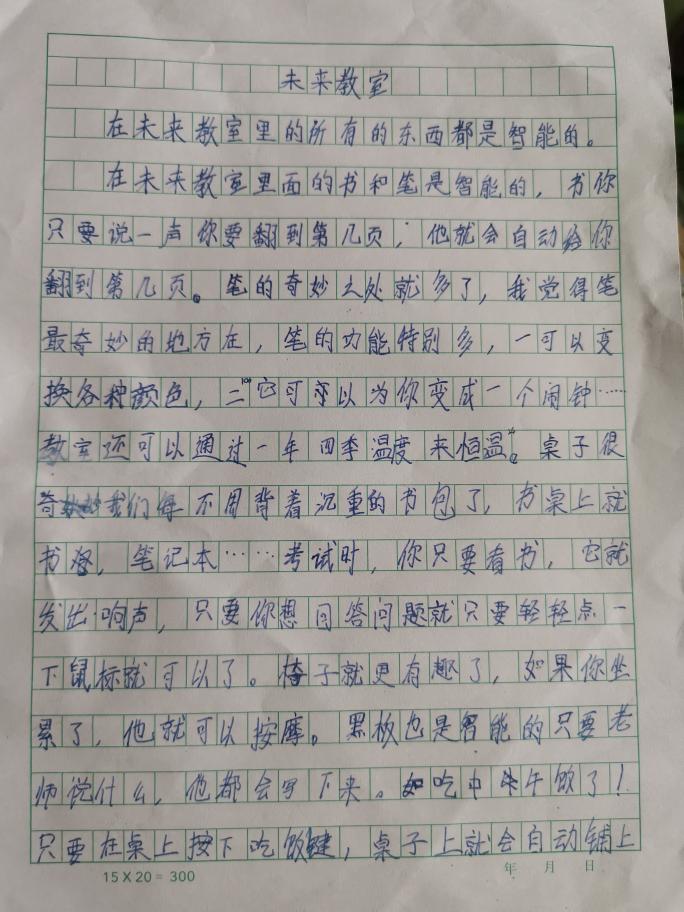 未来教室
在未来教室里的所有的东西都是智能的。
在未来教室里面的书和笔是智能的，书你
只要说一声你要翻到第几页，他就会自动给你
翻到第几页。笔的奇妙之处就多了，我觉得笔
最奇妙的地方在，笔的功能特别多，一可以变
换各种颜色，二它可以为你变成一个闹钟……
教室还可以通过一年四季温度来恒温。桌子很
奇妙我们每不用背着沉重的书包了，书桌上就
书，笔记本……考试时，你只要看书，它就
发出响声，只要你想回答问题就只要轻轻点一
下鼠标就可以了。椅子就更有趣了，如果你坐
累了，他就可以按摩。黑板也是智能的只要老
师说什么，他都会写下来。如吃中午饭了！
只要在桌上按下吃饭键，桌子上就会自动铺上
15×20=300
年 月 日